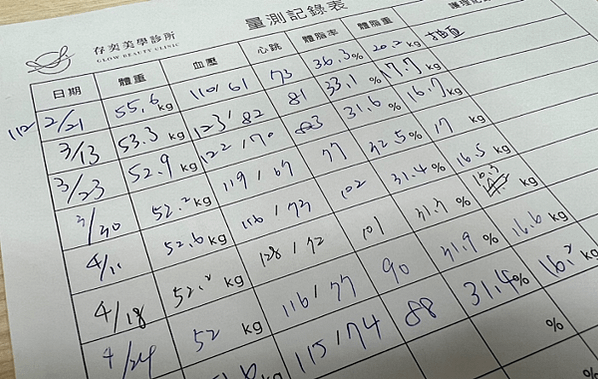 量測記錄表
存奕美學診所
GLOW BEAUTY CLINIC
日期 體重 血壓 心跳 體脂率 體脂重 護理記
112 2/21 55.6 kg 110/61 73 36.3% 20.2 kg
3/13 53.3 kg 123/82 81 33.1 % 17.7 kg
3/23 52.9 kg 122/70 83 31.6 % 16.7 kg
3/30 52.2 kg 119/67 77 32.5% 17 kg
4/11 52.6 kg 116/73 102 31.4% 16.5 kg
4/18 52.2 kg 128/72 101 31.7 % kg
4/24 52 kg 116/77 90 31.9 % 16.6 kg
kg 115/74 88 31.4% 16.2 kg
%